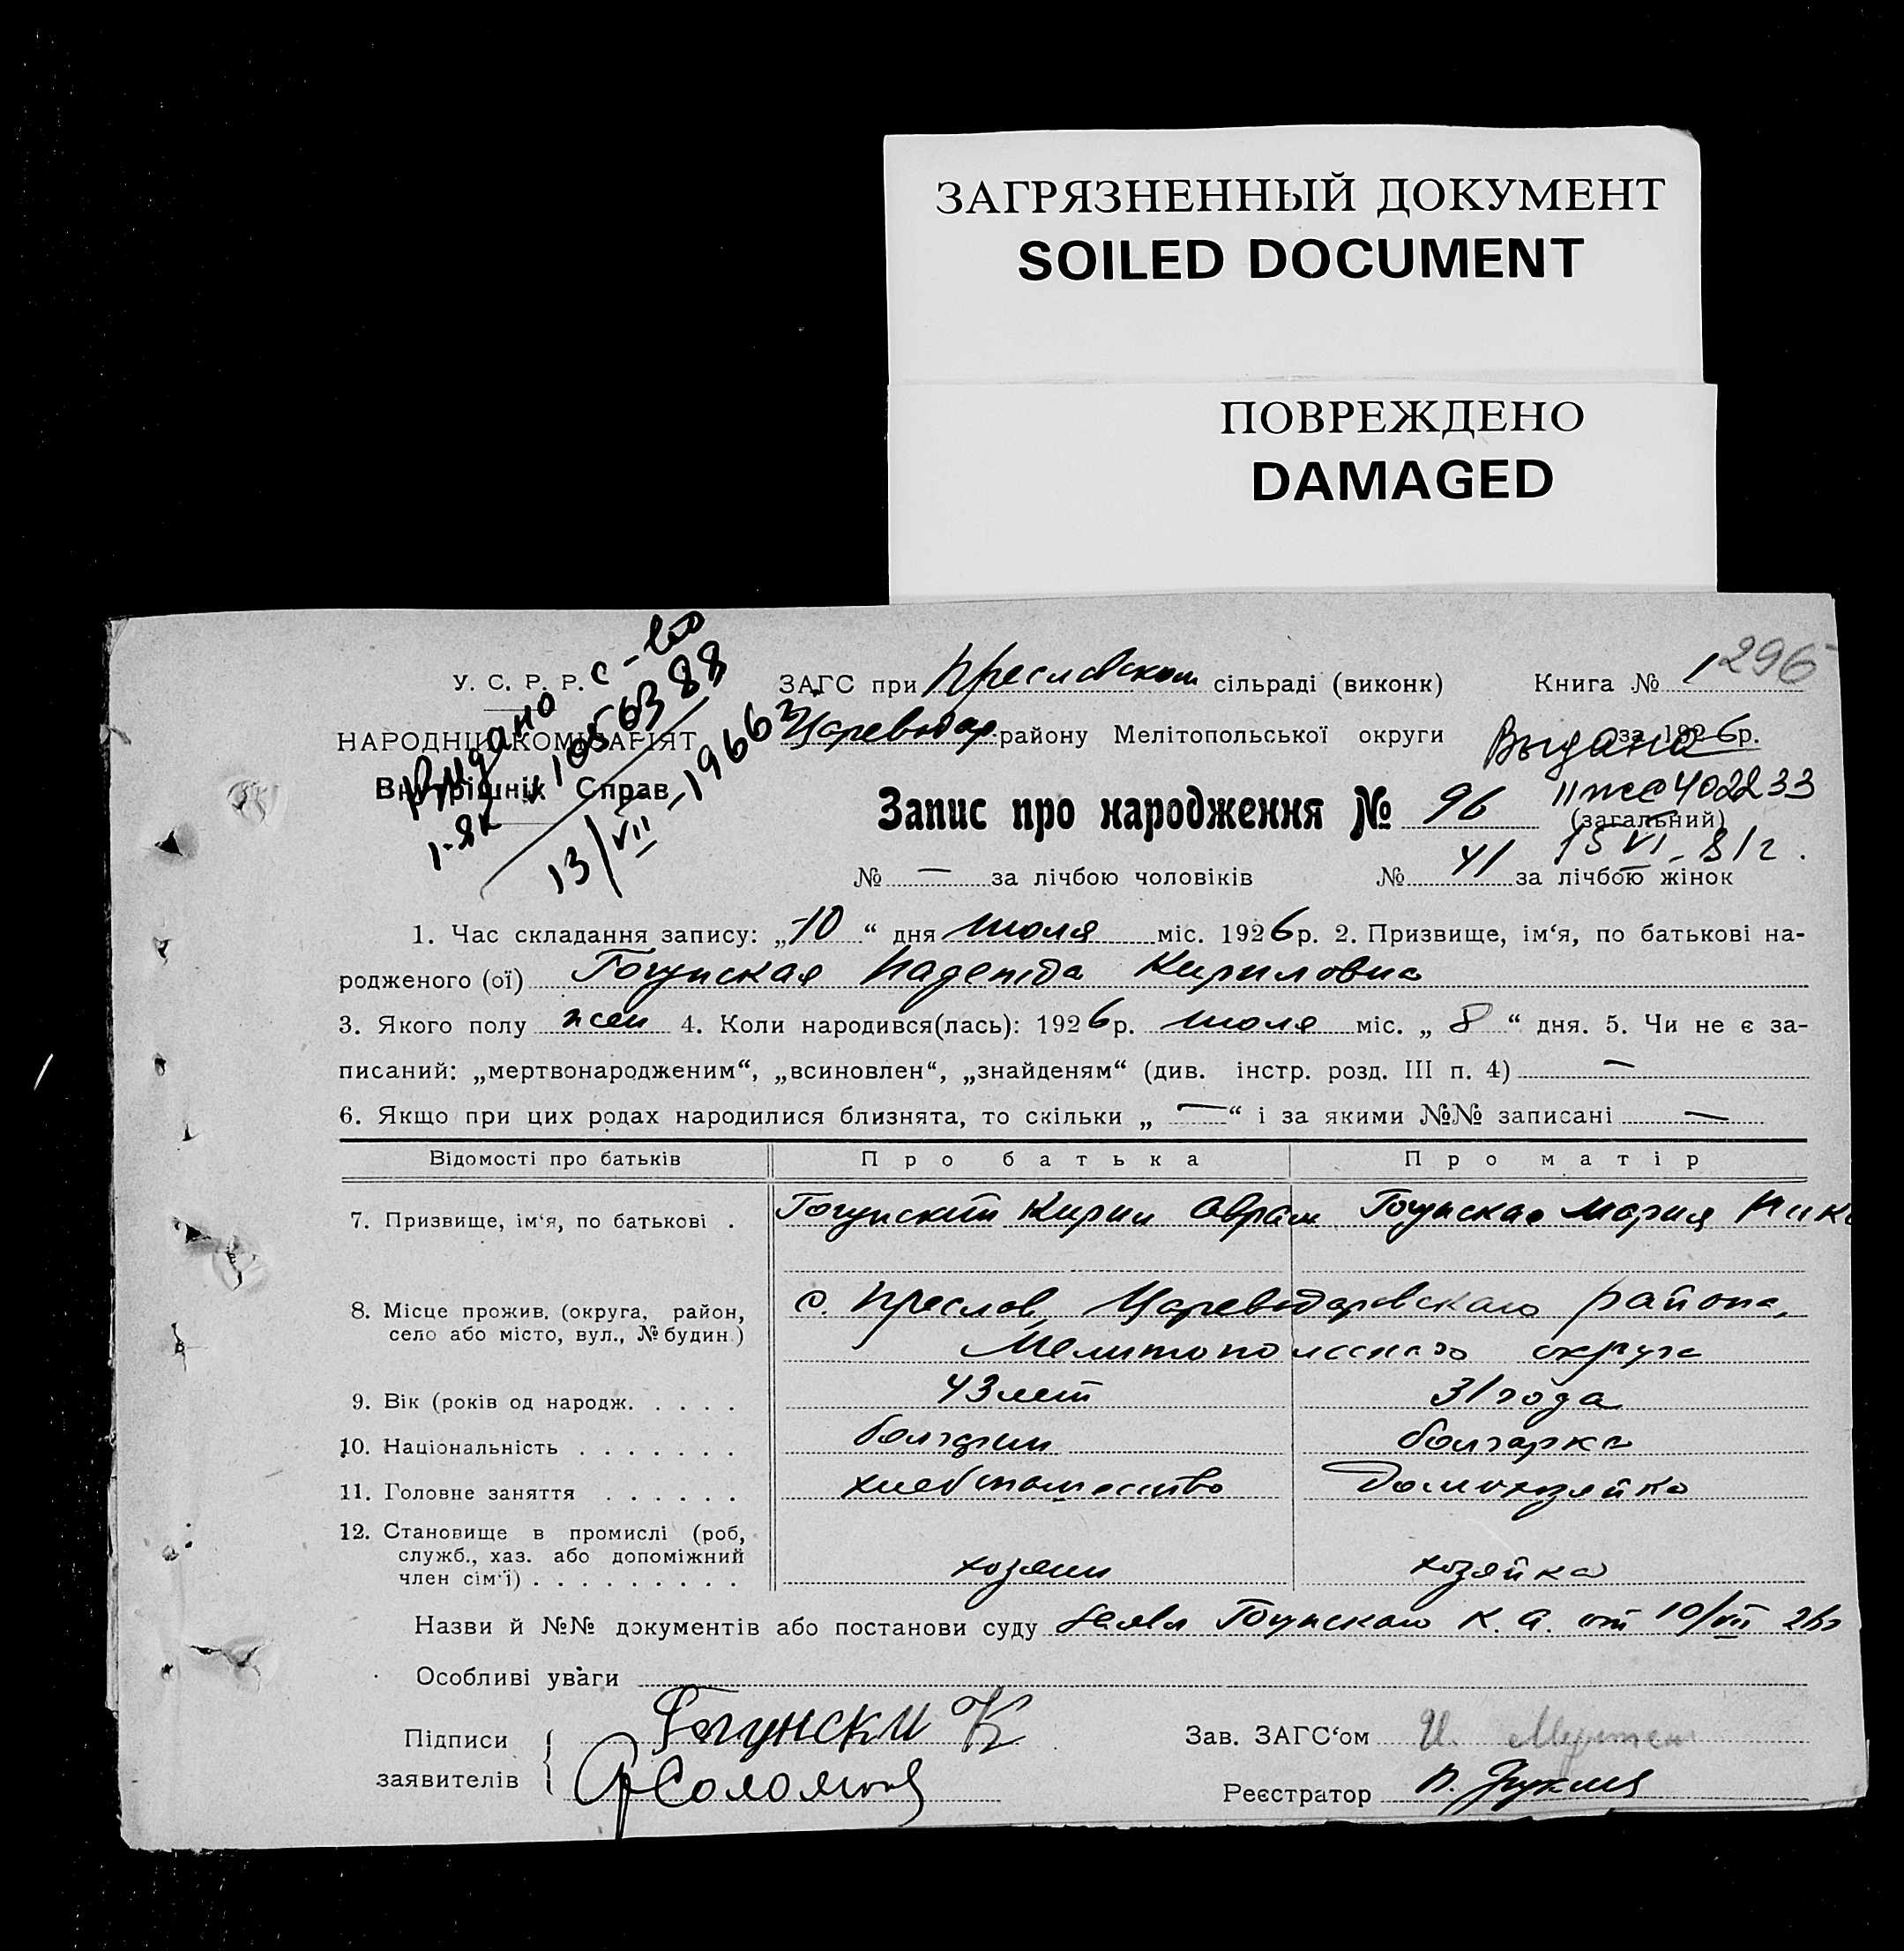 ЗАГРЯЗНЕННЫЙ ДОКУМЕНТ
SOILED DOCUMENT
ПОВРЕЖДЕНО
DAMAGED
296
У. С. Р. Р.
НАРОДНІЙ КОМІСАРІЯТ
Внутрішніх Справ
Видано с-во
1-ЯК № 1056388
13/VII-1966 г.
ЗАГС при Преславском сільраді (виконк) Книга № 1
Цареводар. району Мелітопольської округи за 1926р.
Выдано
II жс 402233
15 VI-81г.
Запис про народження № 96 (загальний)
№ — за лічбою чоловіків № 41 за лічбою жінок
1. Час складання запису: „10“ дня июля міс. 1926р. 2. Призвище, ім‘я, по батькові на-
родженого (ої) Гогунская Надежда Кириловна
3. Якого полу жен 4. Коли народився(лась): 1926р. июля міс. „8“ дня. 5. Чи не є за-
писаний: „мертвонародженим“, „всиновлен“, „знайденям“ (див. інстр. розд. III п. 4) —
6. Якщо при цих родах народилися близнята, то скільки „—“ і за якими №№ записані —
Відомості про батьків Про батька Про матір
7. Призвище, ім‘я, по батькові . Гогунский Кирил Аврам Гогунская Мария Ник
8. Місце прожив. (округа, район, с. Преслав, Цареводаровского района,
село або місто, вул., № будин.) Мелитопольского округа
9. Вік (років од народж. . . . . 43 лет 31 года
10. Національність . . . . . . . болгарин болгарка
11. Головне заняття . . . . . . хлебопашество домохозяйка
12. Становище в промислі (роб,
служб., хаз. або допоміжний
член сім‘ї) . . . . . . . . . хозяин хозяйка
Назви й №№ документів або постанови суду заявл Гогунского К. А. от 10/VII 26г
Особливі уваги
Підписи Гогунски К Зав. ЗАГС‘ом И.
заявителів Соломонов Реєстратор П.